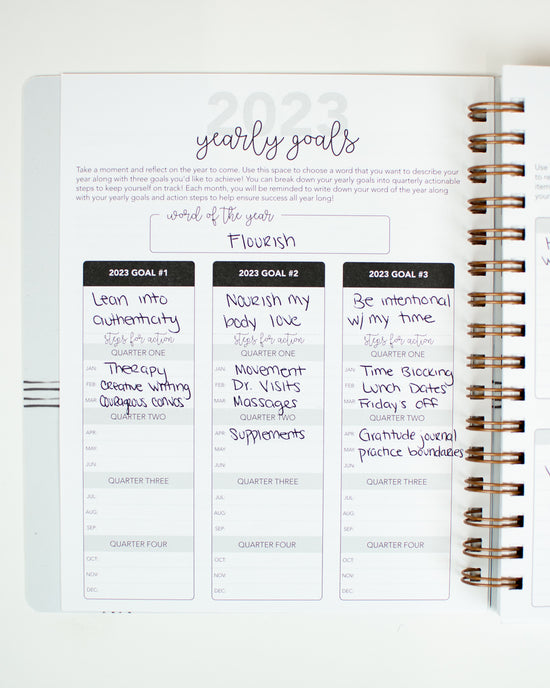 2023
yearly goals
Take a moment and reflect on the year to come. Use this space to choose a word that you want to describe your
year along with three goals you'd like to achieve! You can break down your yearly goals into quarterly actionable
steps to keep yourself on track! Each month, you will be reminded to write down your word of the year along
with your yearly goals and action steps to help ensure success all year long!
word of the year
Flourish
2023 GOAL #1
Lean into
authenticity
steps for action
QUARTER ONE
JAN: Therapy
FEB: creative writing
MAR: courageous convos
QUARTER TWO
APR:
MAY:
JUN:
QUARTER THREE
JUL:
AUG:
SEP:
QUARTER FOUR
OCT:
NOV:
DEC:
2023 GOAL #2
Nourish my
body love
steps for action
QUARTER ONE
Movement
Dr. Visits
Massages
QUARTER TWO
Supplements
QUARTER THREE
QUARTER FOUR
2023 GOAL #3
Be intentional
w/ my time
steps for action
QUARTER ONE
JAN: Time Blocking
FEB: Lunch Dates
MAR: Friday's off
QUARTER TWO
APR: Gratitude journal
MAY: practice boundaries
JUN:
QUARTER THREE
JUL:
AUG:
SEP:
QUARTER FOUR
OCT:
NOV:
DEC:
Use